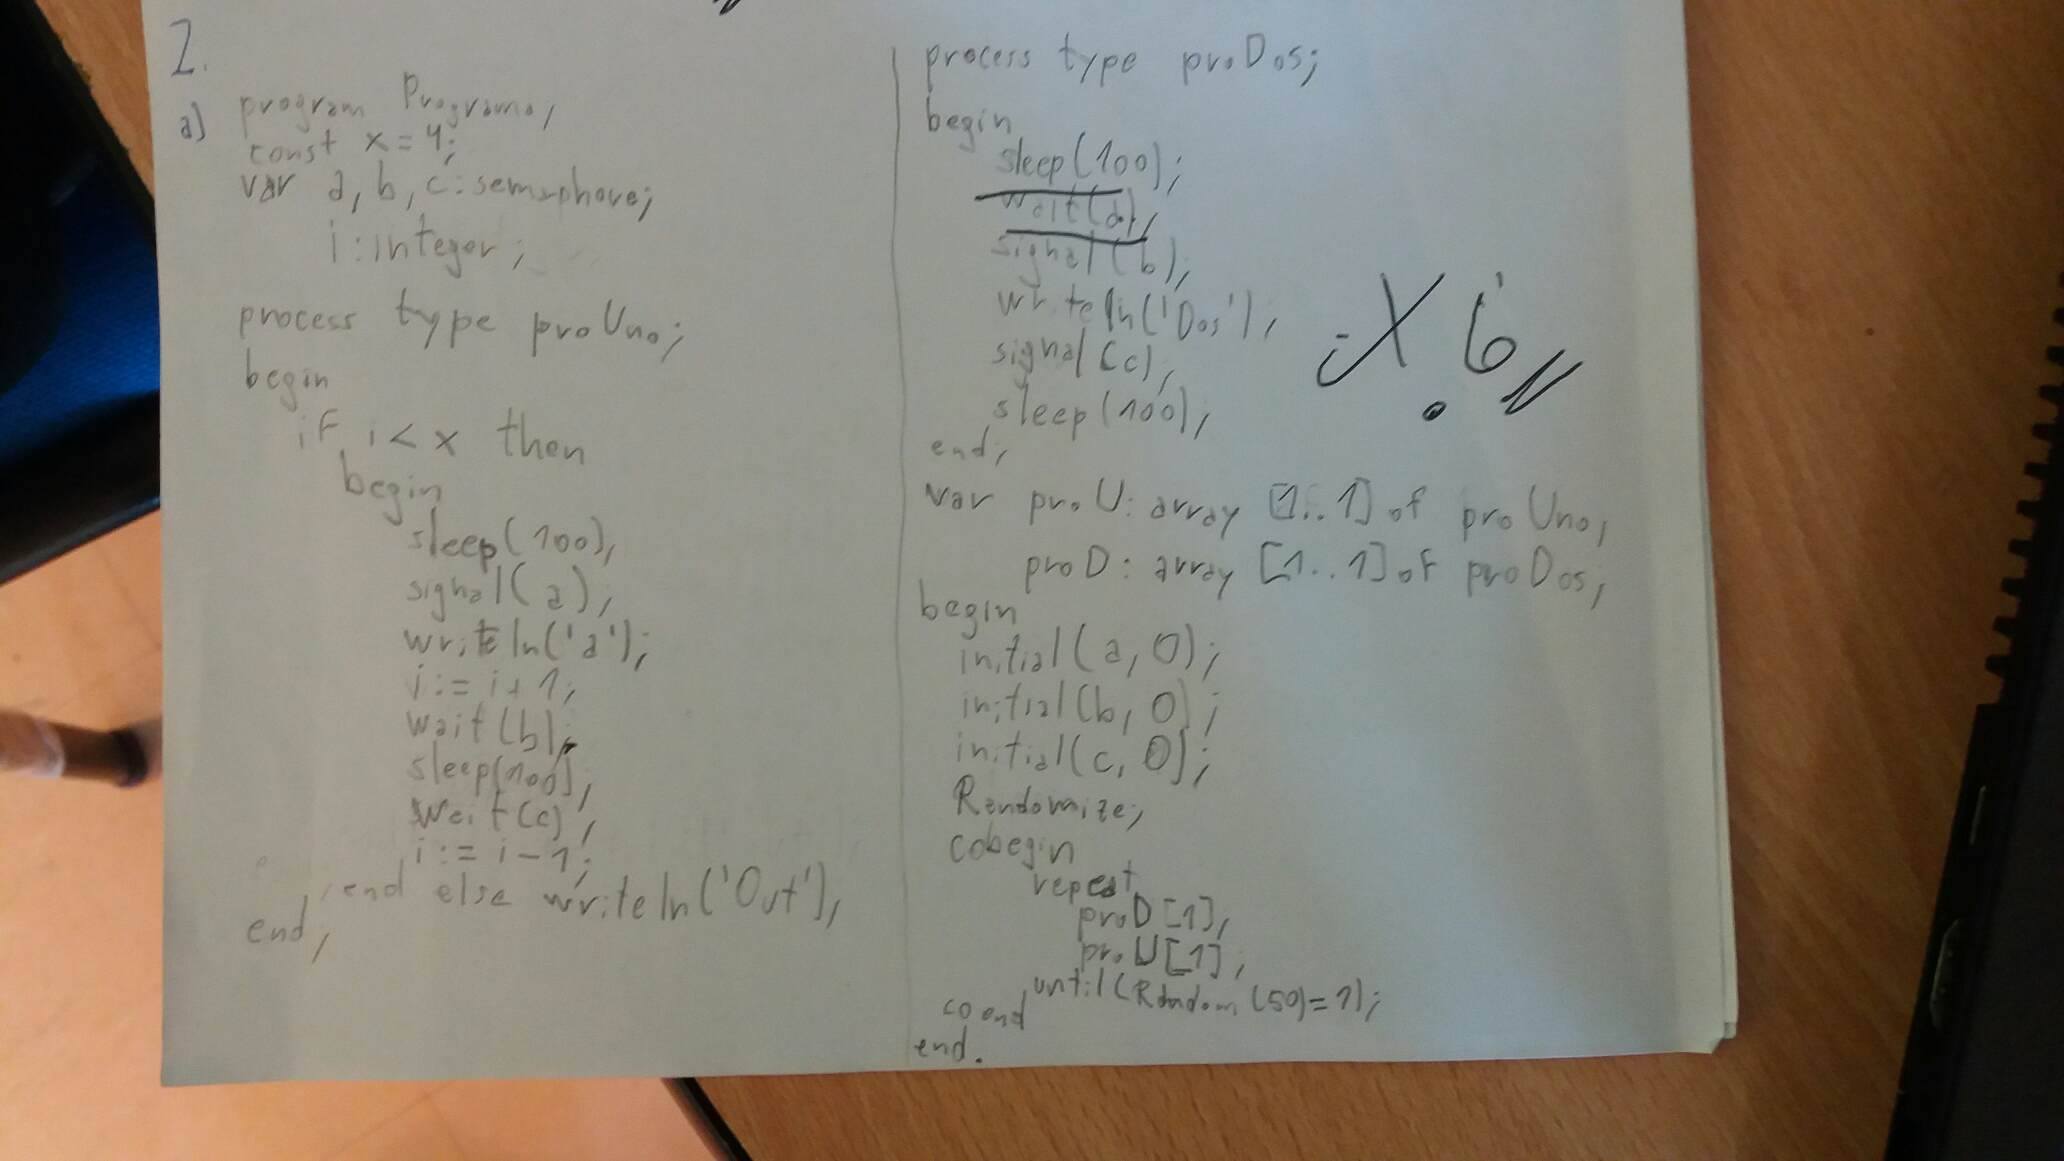 2.
a) program Programa,
const x = 4;
var a, b, c : semaphore;
i : integer;
process type proUno;
begin
if i < x then
begin
sleep(100),
signal(a),
writeln('a');
i := i + 1;
wait(b);
sleep(100),
wait(c),
i := i - 1;
end else writeln('Out'),
end,
process type proDos;
begin
sleep(100);
wait(a),
signal(b),
writeln('Dos'),
signal(c),
sleep(100),
end,
var proU : array [1..1] of proUno,
proD : array [1..1] of proDos;
begin
initial(a, 0);
initial(b, 0);
initial(c, 0);
Randomize;
cobegin
repeat
proD[1],
proU[1];
until(Random(50)=1);
coend
end.